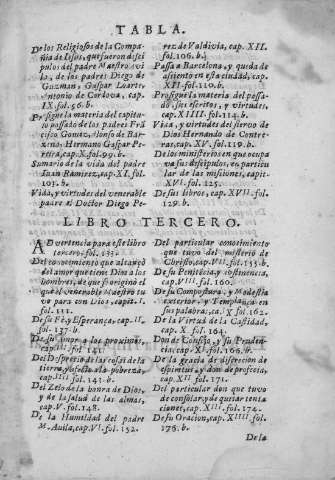 TABLA.
De los Religiosos de la Compa-
ñia de Iesus, que fueron disci
pulos del padre Maestro Avi
la, de los padres Diego de
Guzman, Gaspar Loarte,
Antonio de Cordova, cap.
IX. fol. 56. b.
Prosigue la materia del capitu
lo passado de los padres Frā
cisco Gomez, Alonso de Bar-
zana, Hermano Gaspar Pe-
reira, cap. X. fol. 99. b.
Sumario de la vida del padre
Iuan Ramirez, cap. XI. fol.
103. b.
Vida, y virtudes del venerable
padre el Doctor Diego Pe-
rez de Valdivia, cap. XII.
fol. 106. b.
Passa a Barcelona, y queda de
assiento en esta ciudad, cap.
XIII. fol. 110. b.
Prosigue la materia del passa-
do, sus escritos, y virtudes,
cap. XIIII. fol. 114. b.
Vida, y virtudes del siervo de
Dios Hernando de Contre-
ras, cap. XV. fol. 119. b.
De los ministerios en que ocupa
va sus discipulos, en particu
lar de las misiones, capit.
XVI. fol. 125.
De sus libros, cap. XVII. fol.
129. b.
LIBRO TERCERO.
ADvertencia para este libro
tercero, fol. 133.
Del conocimiento que alcançò
del amor que tiene Dios a los
hombres, de que se originò el
que el venerable Maestro tu
vo para con Dios, capit. I.
De su Fè, y Esperança, cap. II.
fol. 137. b.
De su amor a los proximos,
cap. III. fol. 141.
Del Desprecio de las cosas de la
tierra, y afecto a la pobreza,
cap. IIII. fol. 143. b.
Del Zelo de la honra de Dios,
y de la salud de las almas,
cap. V. fol. 148.
De la Humildad del padre
M. Auila, cap. VI. fol. 152.
Del particular conocimiento
que tuvo del misterio de
Christo, cap. VII. fol. 155. b.
De su Penitēcia, y abstinencia,
cap. VIII. fol. 160.
De su Compostura, y Modestia
exterior, y Templança en
sus palabras, ca. IX. fol. 162.
De la Virtud de la Castidad,
cap. X. fol. 164.
Don de Consejo, y su Pruden-
cia, cap. XI. fol. 166.
De la gracia de discrecion de
espiritus, y don de profecia,
cap. XII. fol. 171.
Del particular don que tuvo
de consolar, y de quitar tenta
ciones, cap. XIII. fol. 174.
De su Oracion, cap. XIIII. fol.
178. b.
De la